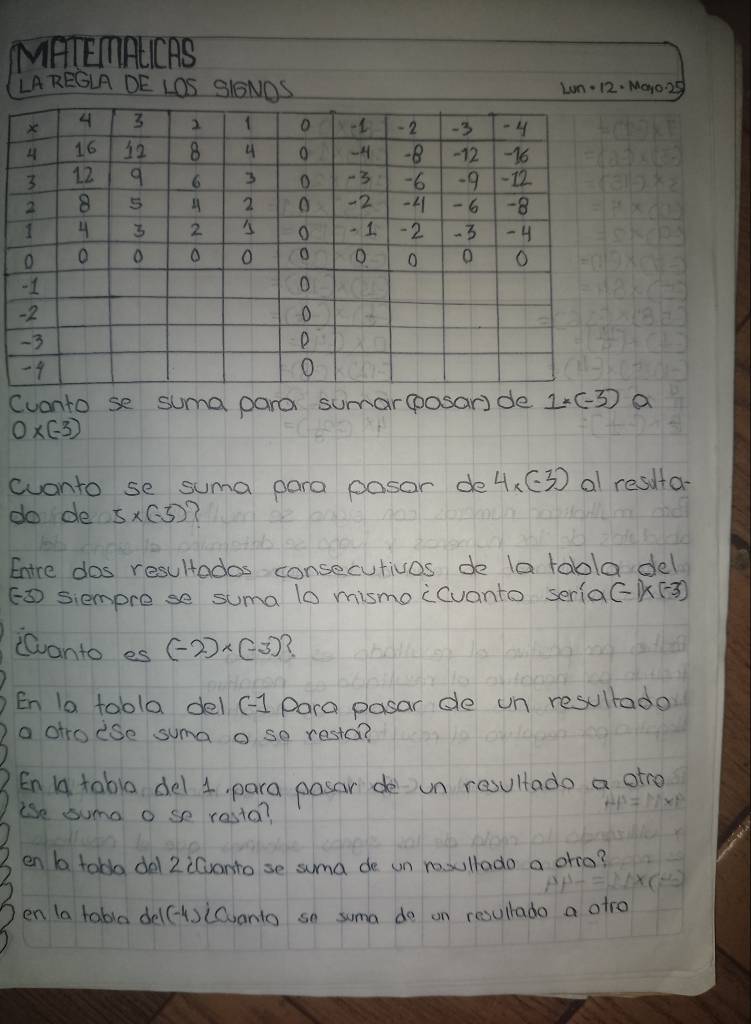 MATEMATICAS
LA REGLA DE LOS SIGNOS Lun · 12 · Mayo · 25
x 4 3 2 1 0 -1 -2 -3 -4
4 16 12 8 4 0 -4 -8 -12 -16
3 12 9 6 3 0 -3 -6 -9 -12
2 8 5 4 2 0 -2 -4 -6 -8
1 4 3 2 1 0 -1 -2 -3 -4
0 0 0 0 0 0 0 0 0 0
-1 0
-2 0
-3 0
-4 0
Cuanto se suma para sumar (pasar) de 1x(-3) a
0x(-3)
Cuanto se suma para pasar de 4x(-3) al resulta-
do de 5x(-3)?
Entre dos resultados consecutivos de la tabla del
(-3) siempre se suma lo mismo ¿Cuanto sería (-1)x(-3)
¿Cuanto es (-2)x(-3)?
En la tabla del (-1 para pasar de un resultado
a otro ¿Se suma o se resta?
En la tabla del 1. para pasar de un resultado a otro
¿Se suma o se resta?
en la tabla del 2 ¿Cuanto se suma de un resultado a otro?
en la tabla del (-4) ¿Cuanto se suma de un resultado a otro